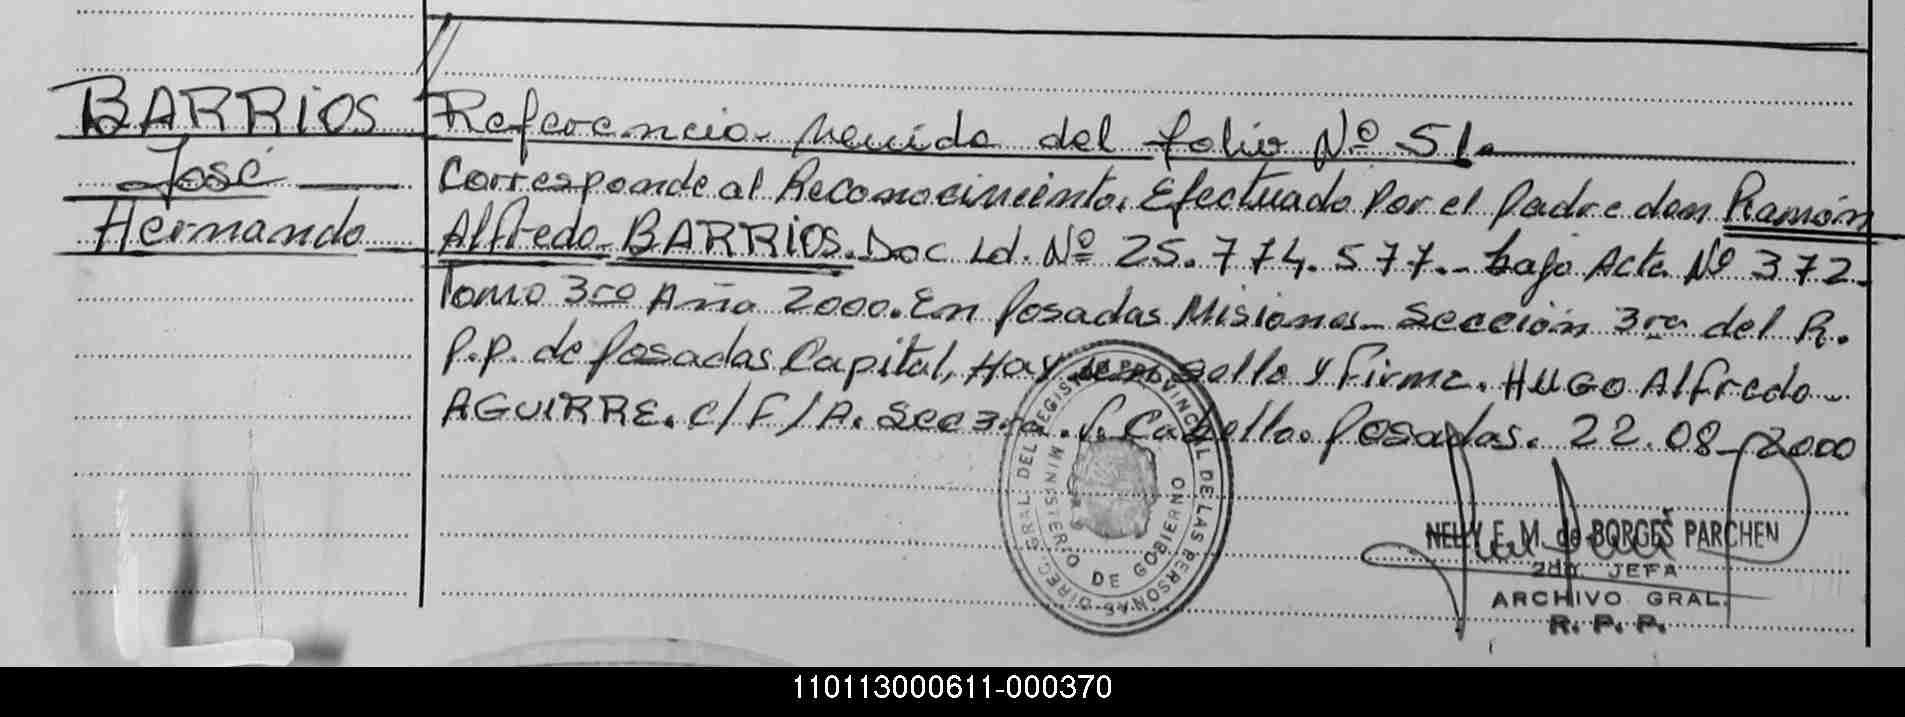 BARRIOS
José
Hernando
Referencia venida del folio Nº 51.
Corresponde al Reconocimiento. Efectuado Por el Padre don Ramón
Alfredo BARRIOS. Doc Id. Nº 25.774.577.- bajo Acta Nº 372-
Tomo 3ro Año 2000. En Posadas Misiones- Sección 3ra del R.
P.P. de Posadas Capital, Hay un sello y Firma. HUGO Alfredo-
AGUIRRE. C/F/A. Sec 3ra. S. Cabello. Posadas. 22.08-2000
DIREC. GRAL DEL REGISTRO PROVINCIAL DE LAS PERSONAS
MINISTERIO DE GOBIERNO
NELLY E. M. de BORGES PARCHEN
2da. JEFA
ARCHIVO GRAL.
R. P. P.
110113000611-000370